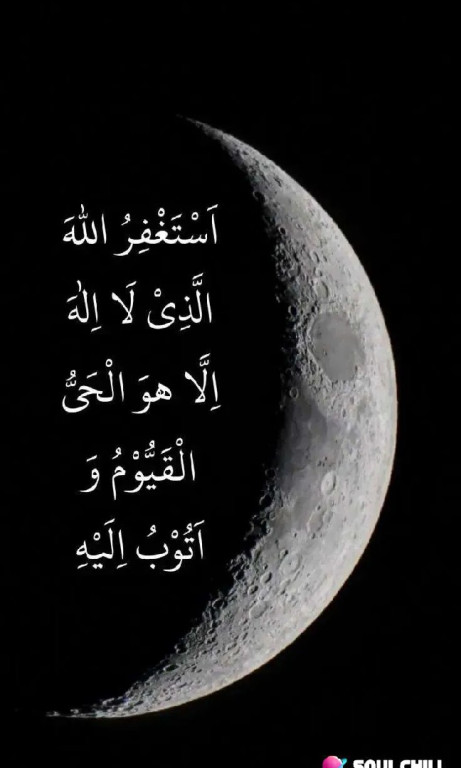 اَسْتَغْفِرُ اللّٰهَ
الَّذِیْ لَا اِلٰهَ
اِلَّا هوَ الْحَیُّ
الْقَيُّوْمُ وَ
اَتُوْبُ اِلَيْهِ
SOUL CHILL